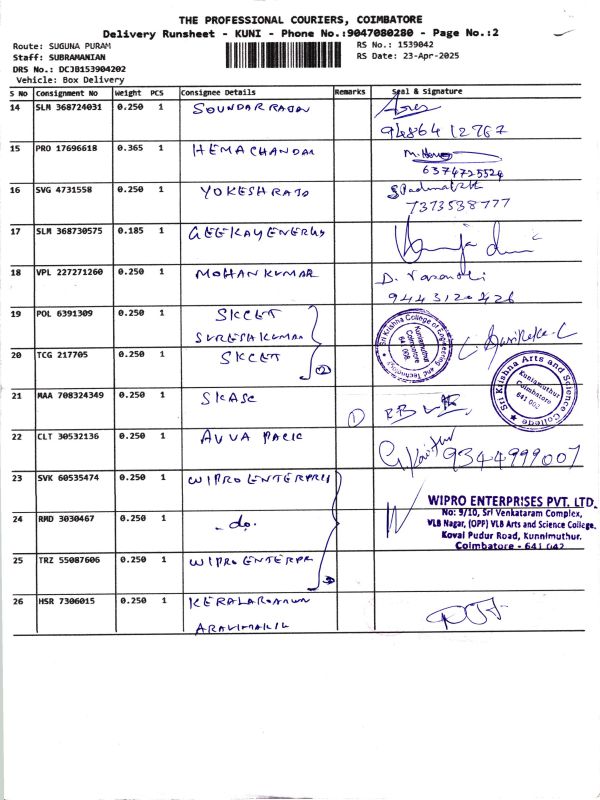 THE PROFESSIONAL COURIERS, COIMBATORE
Delivery Runsheet - KUNI - Phone No.:9047080280 - Page No.:2
Route: SUGUNA PURAM
RS No.: 1539042
Staff: SUBRAMANIAN
RS Date: 23-Apr-2025
DRS No.: DCJB153904202
Vehicle: Box Delivery
S No Consignment No Weight PCS Consignee Details Remarks Seal & Signature
14 SLM 368724031 0.250 1 SOUNDARRAJAN
9486412767
15 PRO 17696618 0.365 1 HEMACHANDAN
6374725524
16 SVG 4731558 0.250 1 YOKESHRAJ
7373538777
17 SLM 368730575 0.185 1 GEEKAY ENERGY
18 VPL 227271260 0.250 1 MOHAN KUMAR
9443120426
19 POL 6391309 0.250 1 SKCET
SURESHKUMAR
Sri Krishna College of Engineering and Technology
Kuniamuthur
Coimbatore
641 008.
20 TCG 217705 0.250 1 SKCET
2
Sri Krishna Arts and Science College
Kuniamuthur
Coimbatore
641 008
21 MAA 708324349 0.250 1 SKASC
1
22 CLT 30532136 0.250 1 AVVA PACK
9344999007
23 SVK 60535474 0.250 1 WIPRO ENTERPRIS
WIPRO ENTERPRISES PVT. LTD.
No: 9/10, Sri Venkataram Complex,
24 RMD 3030467 0.250 1 - do.
VLB Nagar, (OPP) VLB Arts and Science College,
Kovai Pudur Road, Kunnimuthur.
Coimbatore - 641 042
25 TRZ 55087606 0.250 1 WIPRO ENTERPR
3
26 HSR 7306015 0.250 1